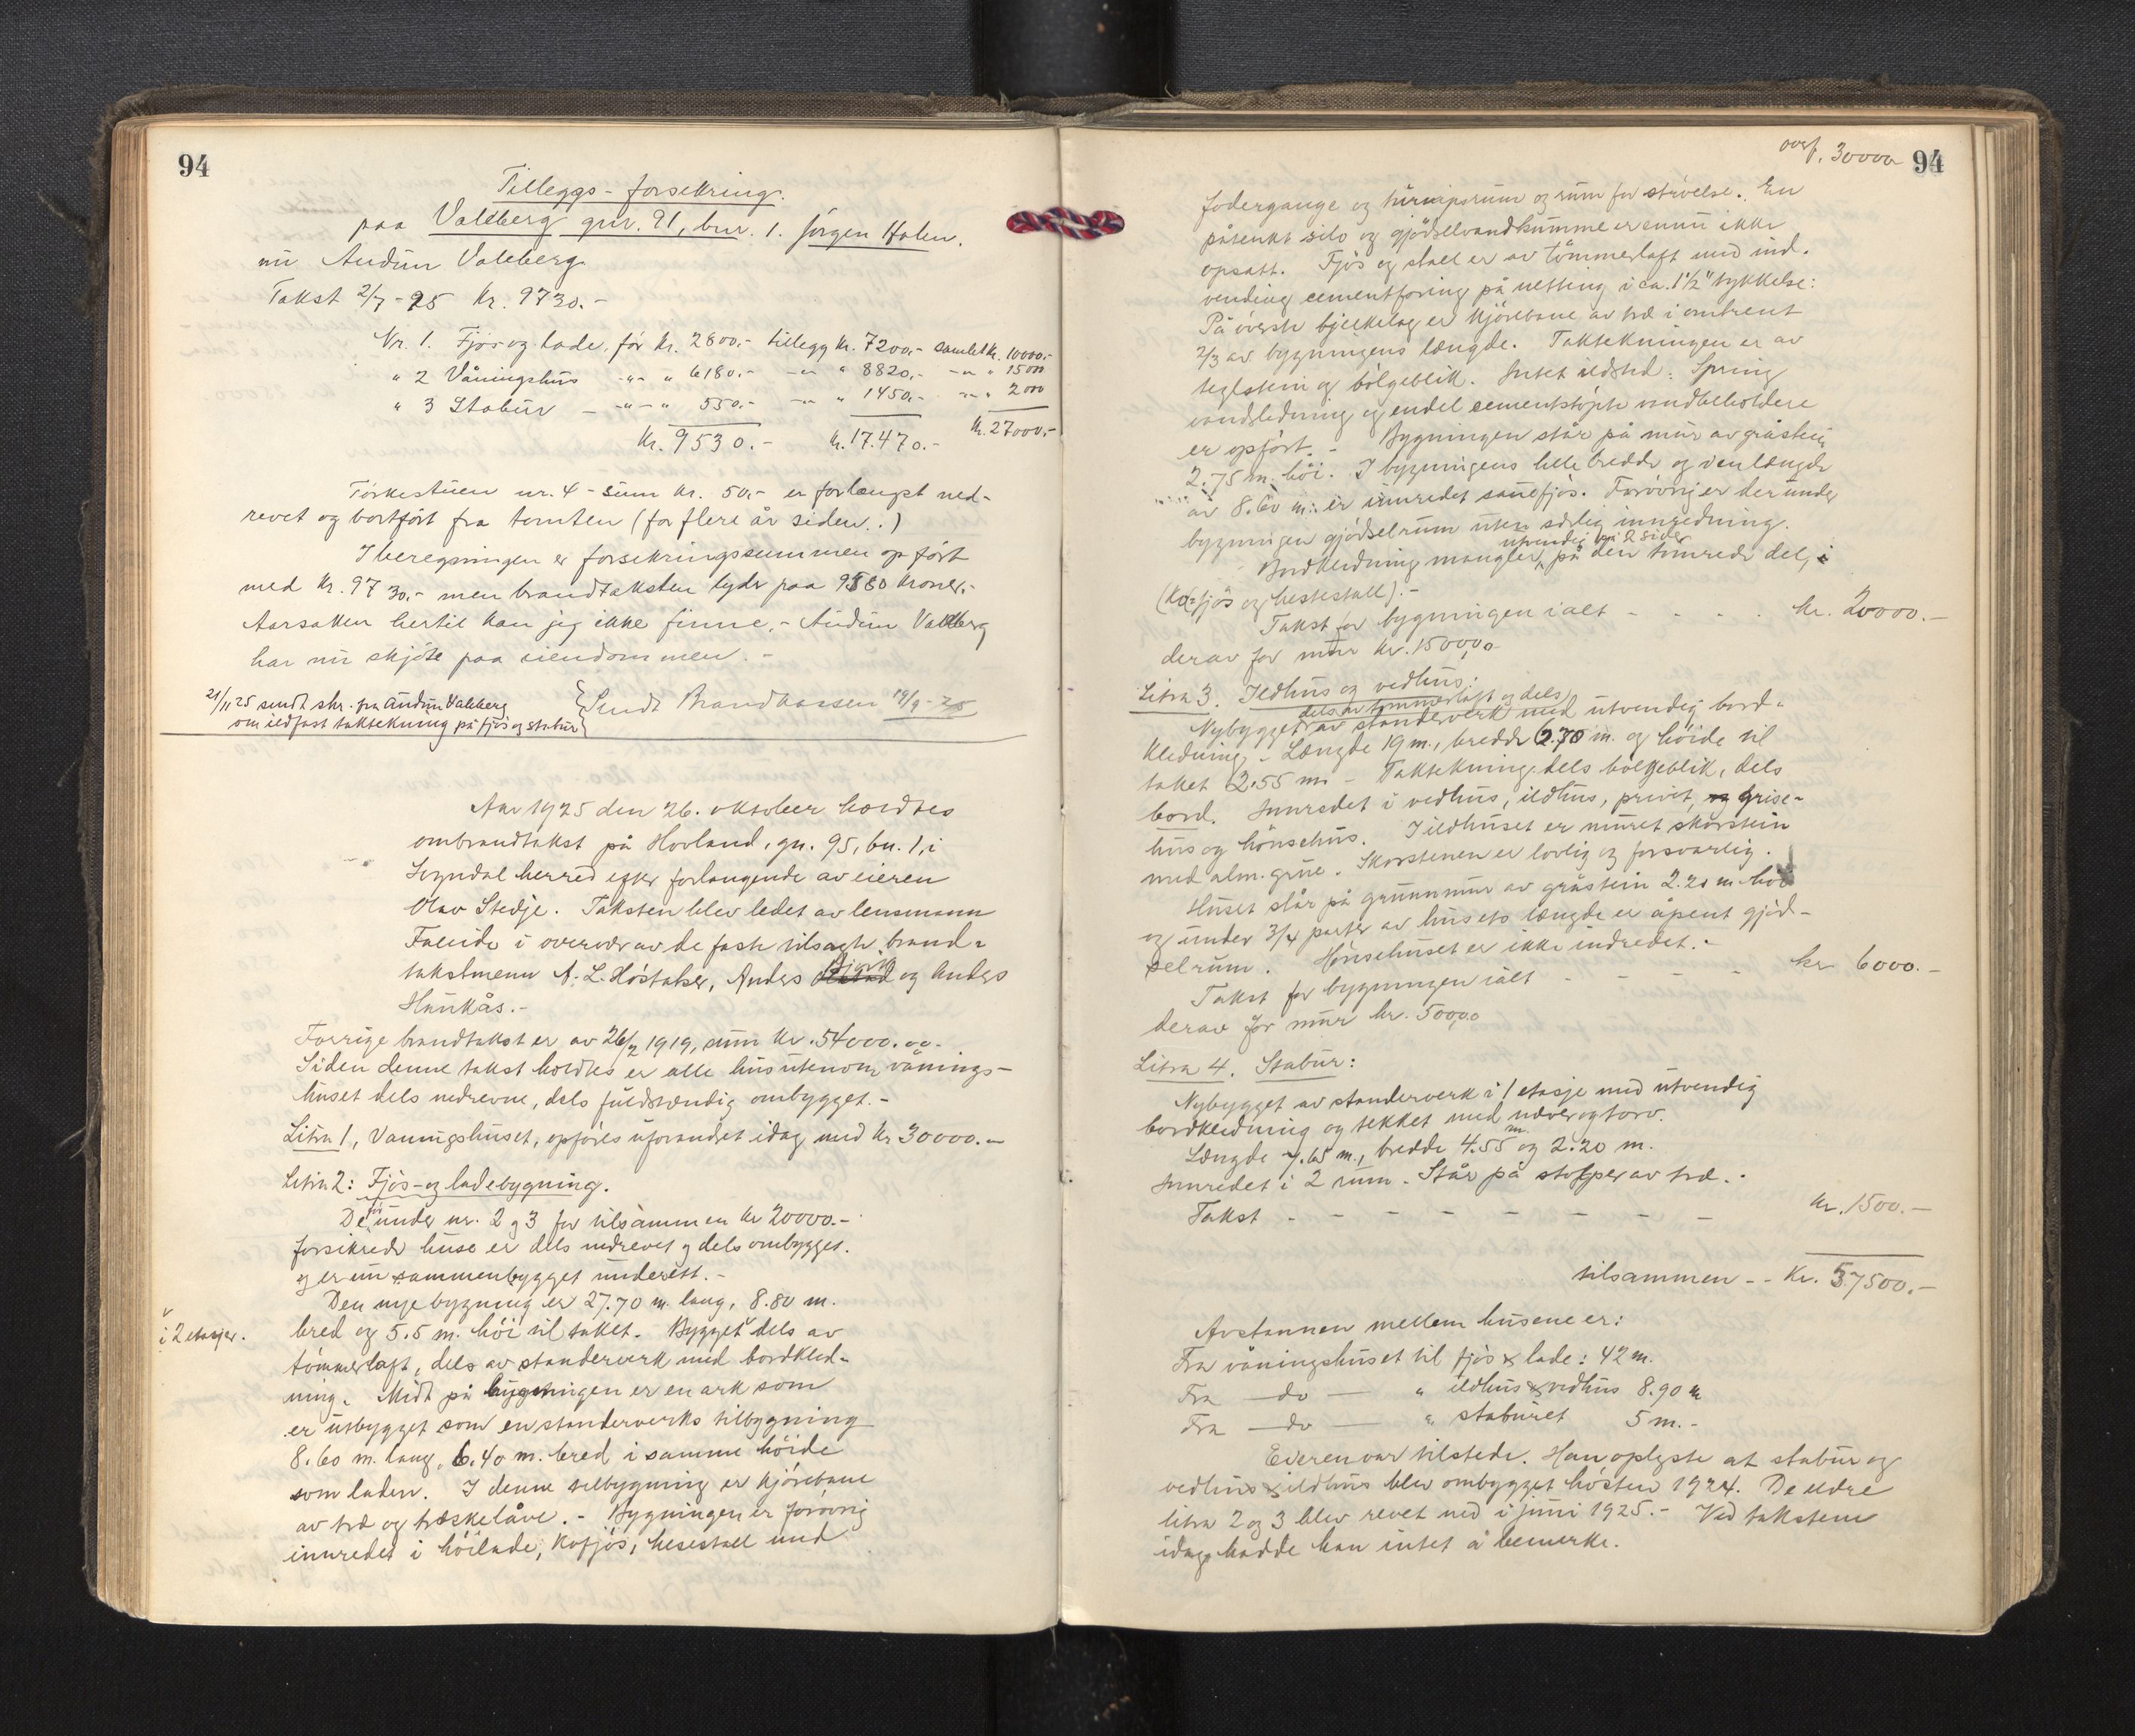 94
Tilleggs-forsekring.
paa Valeberg gnr. 91, bnr. 1. Jörgen Holen.
nu Audun Valeberg
Takst 2/7-25 Kr. 9730.-
Nr. 1. Fjös og lade. för kr. 2800.- tillegg kr. 7200.- samlet kr. 10000.-
" 2 Våningshus -"- " 6180.- -"- " 8820.- -"- " 15000
" 3 Stabur - -"- " 550.- -"- " 1450.- -"- " 2000
Kr. 9530.- kr. 17.470.- kr. 27000.-
Törkestuen nr. 4 - sum kr. 50.- er forlengst ned-
revet og bortfört fra tomten (for flere år siden.)
I beregningen er forsekringssummen opfört
med kr. 9730.- men brandtaksten lyder paa 9580 kroner.-
Aarsaken hertil kan jeg ikke finne.- Audun Valeberg
har nu skjöte paa eiendommen.-
21/11 25 sendt skr. fra Audun Valeberg
om ildfast taktekning på fjös og stabur
Sendt Brandkassen 19/9-25
Aar 1925 den 26. oktober holdtes
ombrandtakst på Hovland, gn. 95, bn. 1, i
Sogndal herred efter forlangende av eieren
Olav Stedje. Taksten blev ledet av lensmann
Faleide i overvær av de faste tilsagte brand-
takstmenn A. L. Höstaker, Anders Bjork og Anders
Haukås.-
Forrige brandtakst er av 26/2 1919, sum kr. 54000.00.
Siden denne takst holdtes er alle hus utenom vånings-
huset dels nedrevne, dels fuldstændig ombygget.-
Litra 1, Vaningshuset, opföres uforandret idag med kr 30000.-
Litra 2: Fjös- og ladebygning.
De under nr. 2 og 3 for tilsammen kr 20000.-
forsikrede huse er dels nedrevet og dels ombygget.
og er nu sammenbygget underett.-
Den nye bygning er 27.70 m. lang, 8.80 m.
i 2 etasjer.
bred og 5.5 m. höi til taket. Bygget dels av
tömmerlaft, dels av standerverk med bordkled-
ning. Midt på bygningen er en ark som
er utbygget som en standerverks tilbygning
8.60 m. lang, 6.40 m. bred i samme höide
som laden. I denne tilbygning er kjörebane
av træ og træskelåve.- Bygningen er forövrig
innredet i höilade, kufjös, hestestall med
overf. 30000
94
fodergange og turnipsrum og rum for strövelse. En
påtenkt silo og gjödselvandkumme er ennu ikke
opsatt. Fjös og stall er av tömmerlaft med ind.
vendig cementforing på netting i ca. 1½" tykkelse:
På överste bjelkelag er kjörebane av træ i omtrent
2/3 av bygningens længde. Taktekningen er av
teglstein og bölgeblik. Intet ildsted. Spring
vandledning og endel cementstöpte vandbeholdere
er opfört.- Bygningen står på mur av gråstein
2.75 m. höi. I bygningens hele bredde og i en længde
av 8.60 m. er innredet sauefjös. Forövrig er der under
bygningen gjödselrum uten særlig innredning.
utvendig på 2 sider
Bordkledning mangler på den tömrede del,
(Kufjös og hestestall).-
Takst for bygningen ialt - - - . kr. 20000.-
derav for mur kr. 1500,00
Litra 3. Ildhus og vedhus:
dels av tömmerlaft og dels
Nybygget av standerverk med utvendig bord-
kledning. Længde 19 m., bredde 6.70 m. og höide til
taket 2.55 m. - Taktekning dels bölgeblik, dels
bord. Innredet i vedhus, ildhus, privet, grise-
hus og hönsehus. I ildhuset er muret skorstein
med alm. grue. Skorstenen er lovlig og forsvarlig.
Huset står på grunnmur av gråstein 2.20 m. höi
og under 3/4 parter av husets længde er åpent gjöd-
selrum. Hönsehuset er ikke indredet.-
Takst for bygningen ialt - - - - kr 6000.-
derav for mur kr. 500,00
Litra 4. Stabur:
Nybygget av standerverk i 1 etasje med utvendig
bordkledning og tekket med never og torv.
Længde 7.65 m., bredde 4.55 m og 2.20 m.
Innredet i 2 rum. Står på stolper av træ.-
Takst - - - - - - - - kr. 1500.-
tilsammen - - Kr. 57500.-
Avstannen mellem husene er:
Fra våningshuset til fjös & lade: 42 m.
Fra - do - " ildhus & vedhus 8.90 m
Fra - do - " staburet 5 m.-
Eieren var tilstede. Han oplyste at stabur og
vedhus & ildhus blev ombygget hösten 1924. De eldre
litra 2 og 3 blev revet ned i juni 1925.- Ved takstene
idag hadde han intet å bemerke.